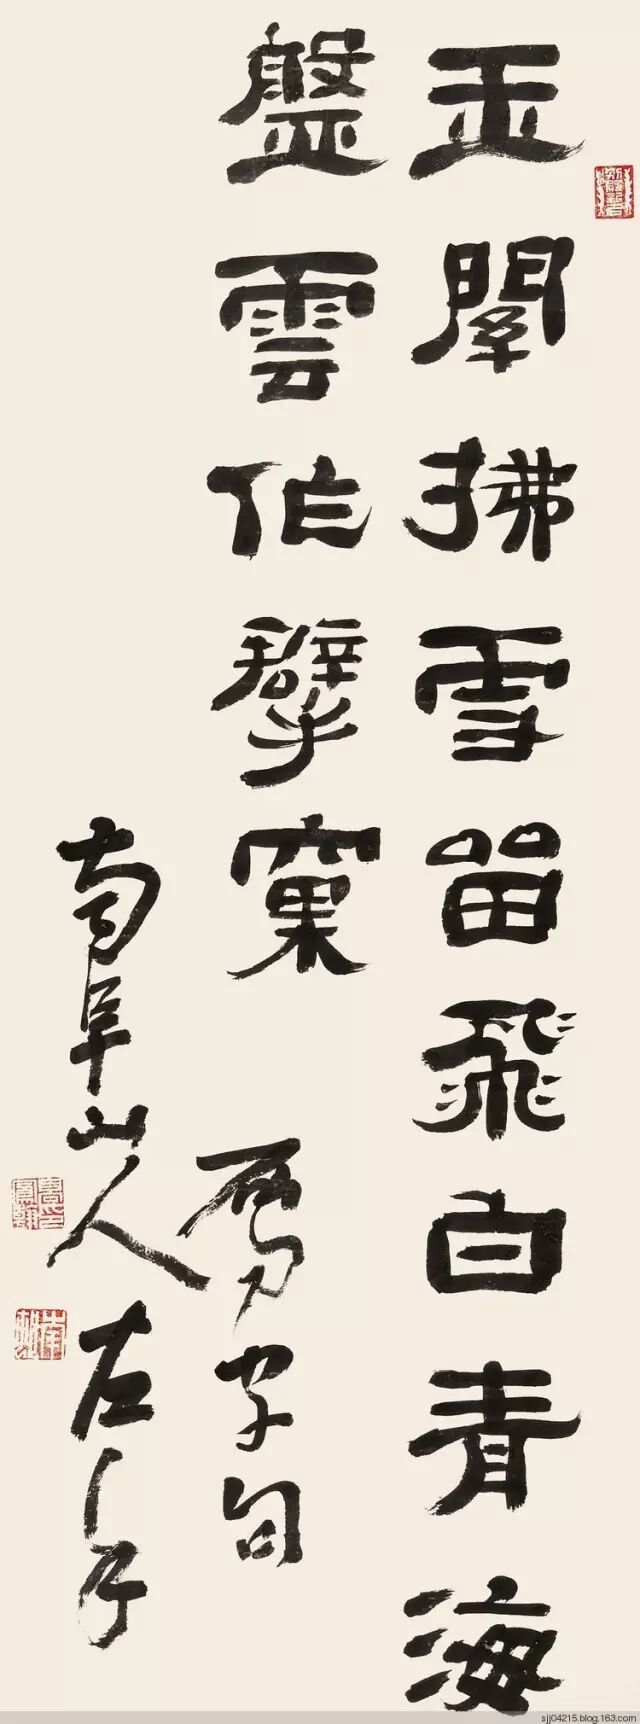 玉關拂雪留飛白青海
盤雲作擘窠 雁字句
南阜山人左手
sjj04215.blog.163.com